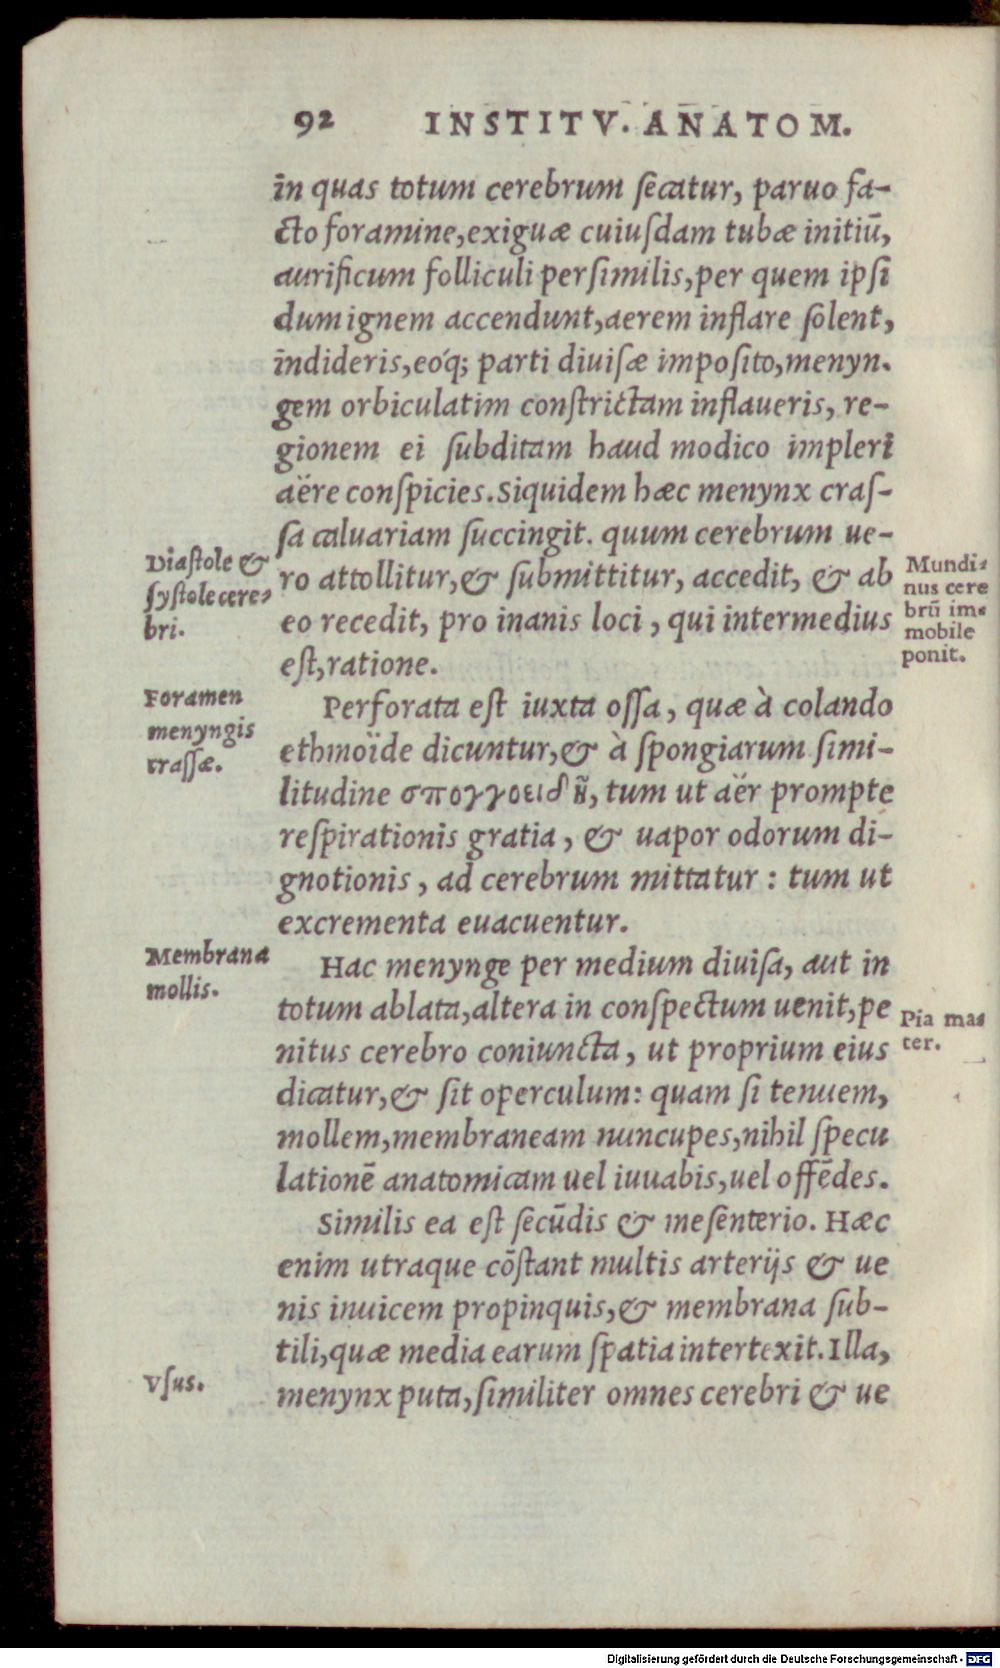 92 INSTITV. ANATOM.
in quas totum cerebrum ſecatur, paruo fa-
cto foramine, exiguæ cuiuſdam tubæ initiũ,
aurificum folliculi perſimilis, per quem ipſi
dum ignem accendunt, aerem inflare ſolent,
indideris, eóq; parti diuiſæ impoſito, menyn.
gem orbiculatim conſtrictam inflaueris, re-
gionem ei ſubditam haud modico impleri
aëre conſpicies. Siquidem hæc menynx craſ-
ſa caluariam ſuccingit. quum cerebrum ue-
ro attollitur, & ſubmittitur, accedit, & ab
eo recedit, pro inanis loci, qui intermedius
eſt, ratione.
Diaſtole &
ſyſtole cere-
bri.
Mundi-
nus cere
brũ im-
mobile
ponit.
Perforata eſt iuxta oſſa, quæ à colando
ethmoïde dicuntur, & à ſpongiarum ſimi-
litudine σπογγοειδῆ, tum ut aër prompte
reſpirationis gratia, & uapor odorum di-
gnotionis, ad cerebrum mittatur: tum ut
excrementa euacuentur.
Foramen
menyngis
craſſæ.
Hac menynge per medium diuiſa, aut in
totum ablata, altera in conſpectum uenit, pe
nitus cerebro coniuncta, ut proprium eius
dicatur, & ſit operculum: quam ſi tenuem,
mollem, membraneam nuncupes, nihil ſpecu
lationẽ anatomicam uel iuuabis, uel offẽdes.
Membrana
mollis.
Pia ma-
ter.
Similis ea eſt ſecũdis & meſenterio. Hæc
enim utraque cõſtant multis arterijs & ue
nis inuicem propinquis, & membrana ſub-
tili, quæ media earum ſpatia intertexit. Illa,
menynx puta, ſimiliter omnes cerebri & ue
Vſus.
Digitalisierung gefördert durch die Deutsche Forschungsgemeinschaft - DFG